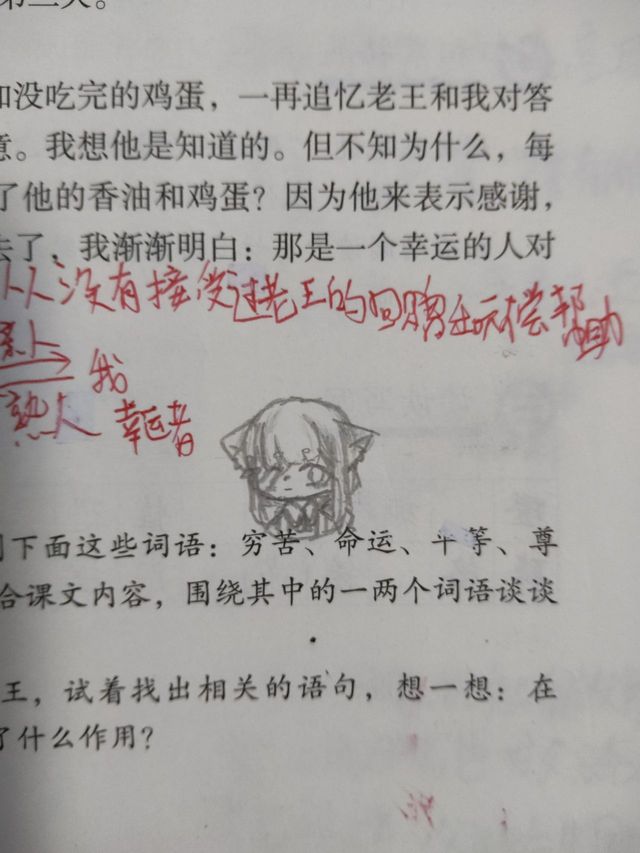 第二天。
和没吃完的鸡蛋，一再追忆老王和我对答
意。我想他是知道的。但不知为什么，每
了他的香油和鸡蛋？因为他来表示感谢，
去了，我渐渐明白：那是一个幸运的人对
从没有接受过老王的回赠 偿帮助
亲人 我
熟人 幸运者
下面这些词语：穷苦、命运、平等、尊
合课文内容，围绕其中的一两个词语谈谈
王，试着找出相关的语句，想一想：在
了什么作用？